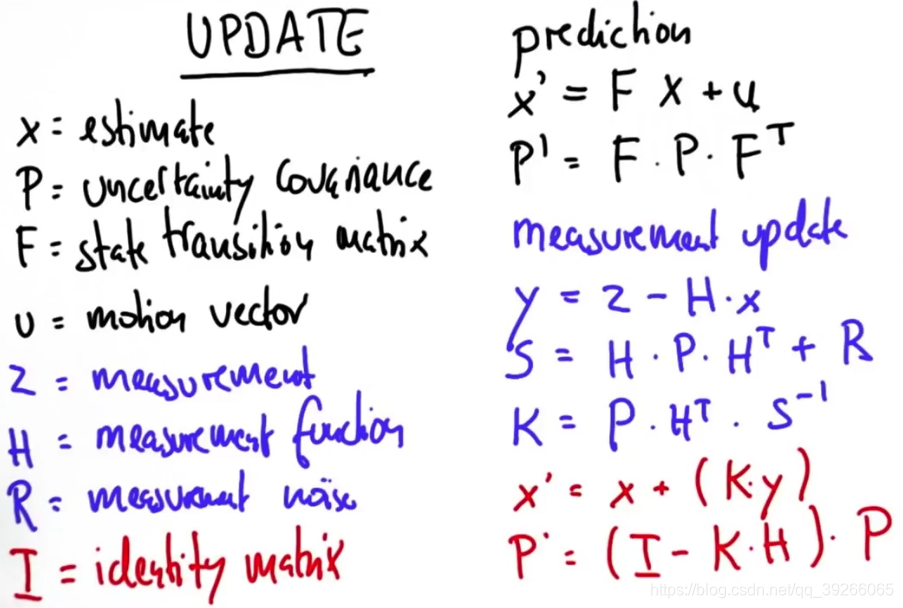 UPDATE
x = estimate
P = uncertainty covariance
F = state transition matrix
u = motion vector
z = measurement
H = measurement function
R = measurement noise
I = identity matrix
prediction
x' = F x + u
P' = F · P · Fᵀ
measurement update
y = z - H · x
S = H · P · Hᵀ + R
K = P · Hᵀ · S⁻¹
x' = x + (K · y)
P' = (I - K · H) · P
https://blog.csdn.net/qq_39266065